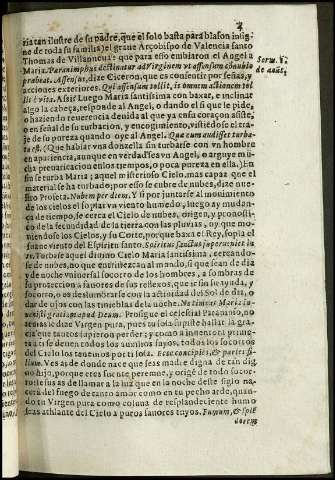 2
ria tan ilustre de su padre, que el solo basta para blason insig-
ne de toda su familia) el graue Arçobispo de Valencia santo
Thomas de Villanueua: que para esso embiaron el Angel a
Maria. Paranimphus destinatur ad Virginem vt assensum
prabeat. Assensus, dize Ciceron, que es consentir por señas, y
acciones exteriores. Qui assensum tollit, is omnem actionem tol-
lit è vita. Assi Luego Maria santissima con baxar, e inclinar
algo la cabeça, responde al Angel, o dando el si que le pide,
o haziendo reuerencia deuida al que ya en su coraçon assiste,
o en señal de su turbacion, y encogimiento, vistiedose el tra-
ge de su pureza quando oye al Angel. Quæ cum audisset turba-
ta est. (Que hablar vna donzella sin turbarse con vn hombre
en apariencia, aunque en verdad sea vn Angel, o arguye mu-
cha preuaricacion en los tiempos, o poca pureza en ella.) En
fin se turba Maria; aquel misterioso Cielo, mas capaz que el
material se ha turbado; por esso se cubre de nubes, dize nues-
tro Profeta. Nubem per diem. Y si por juntarse al mouimiento
de los cielos el soplar vn viento humedo, luego ay mudan-
ça de tiempo, se cerca el Cielo de nubes, origen, y pronosti-
co de la fecundidad de la tierra con las pluuias, oy que mo-
uiendose los Cielos, y su Corte, porque baxaua el Rey, sopla el
diuino viento del Espiritu santo. Spiritus sanctus superueniet in
te. Turbase aquel diuino Cielo Maria santissima, cercando-
se de nubes, no que entristezcan al mundo, si que sean de dia
y de noche vniuersal socorro de los hombres, a sombras de
su proteccion a fauores de sus reflexos, que ir sin su ayuda, y
socorro, o es deslumbrarse con la actiuidad del Sol de dia, o
dar de ojos con las tinieblas de la noche. Ne timeas Maria in-
uenisti gratiam apud Deum. Prosigue el celestial Paraninfo, no
temais le dize Virgen pura, pues tu sola supiste hallar la gra-
cia que tantos supieron perder; y como a inuentora primera
a ti se deben todos los auxilios suyos, todos los socorros
del Cielo los tenemos por ti sola. Ecce concipies, & paries fi-
lium. Ves as de donde nace que seas madre digna de tan dig-
no hijo, porque eres fuente peremne, y origē de todo socor-
ro de sus as de llamar a la luz que en la noche deste siglo na-
cerá del fuego de tanto amor como en tu pecho arde, quan-
do tu Virgen pura como coluna de resplandeciente humo
seas athlante del Cielo a puros fauores tuyos. Fumum, & splē
dorem
Serm. 1.
de anūt.